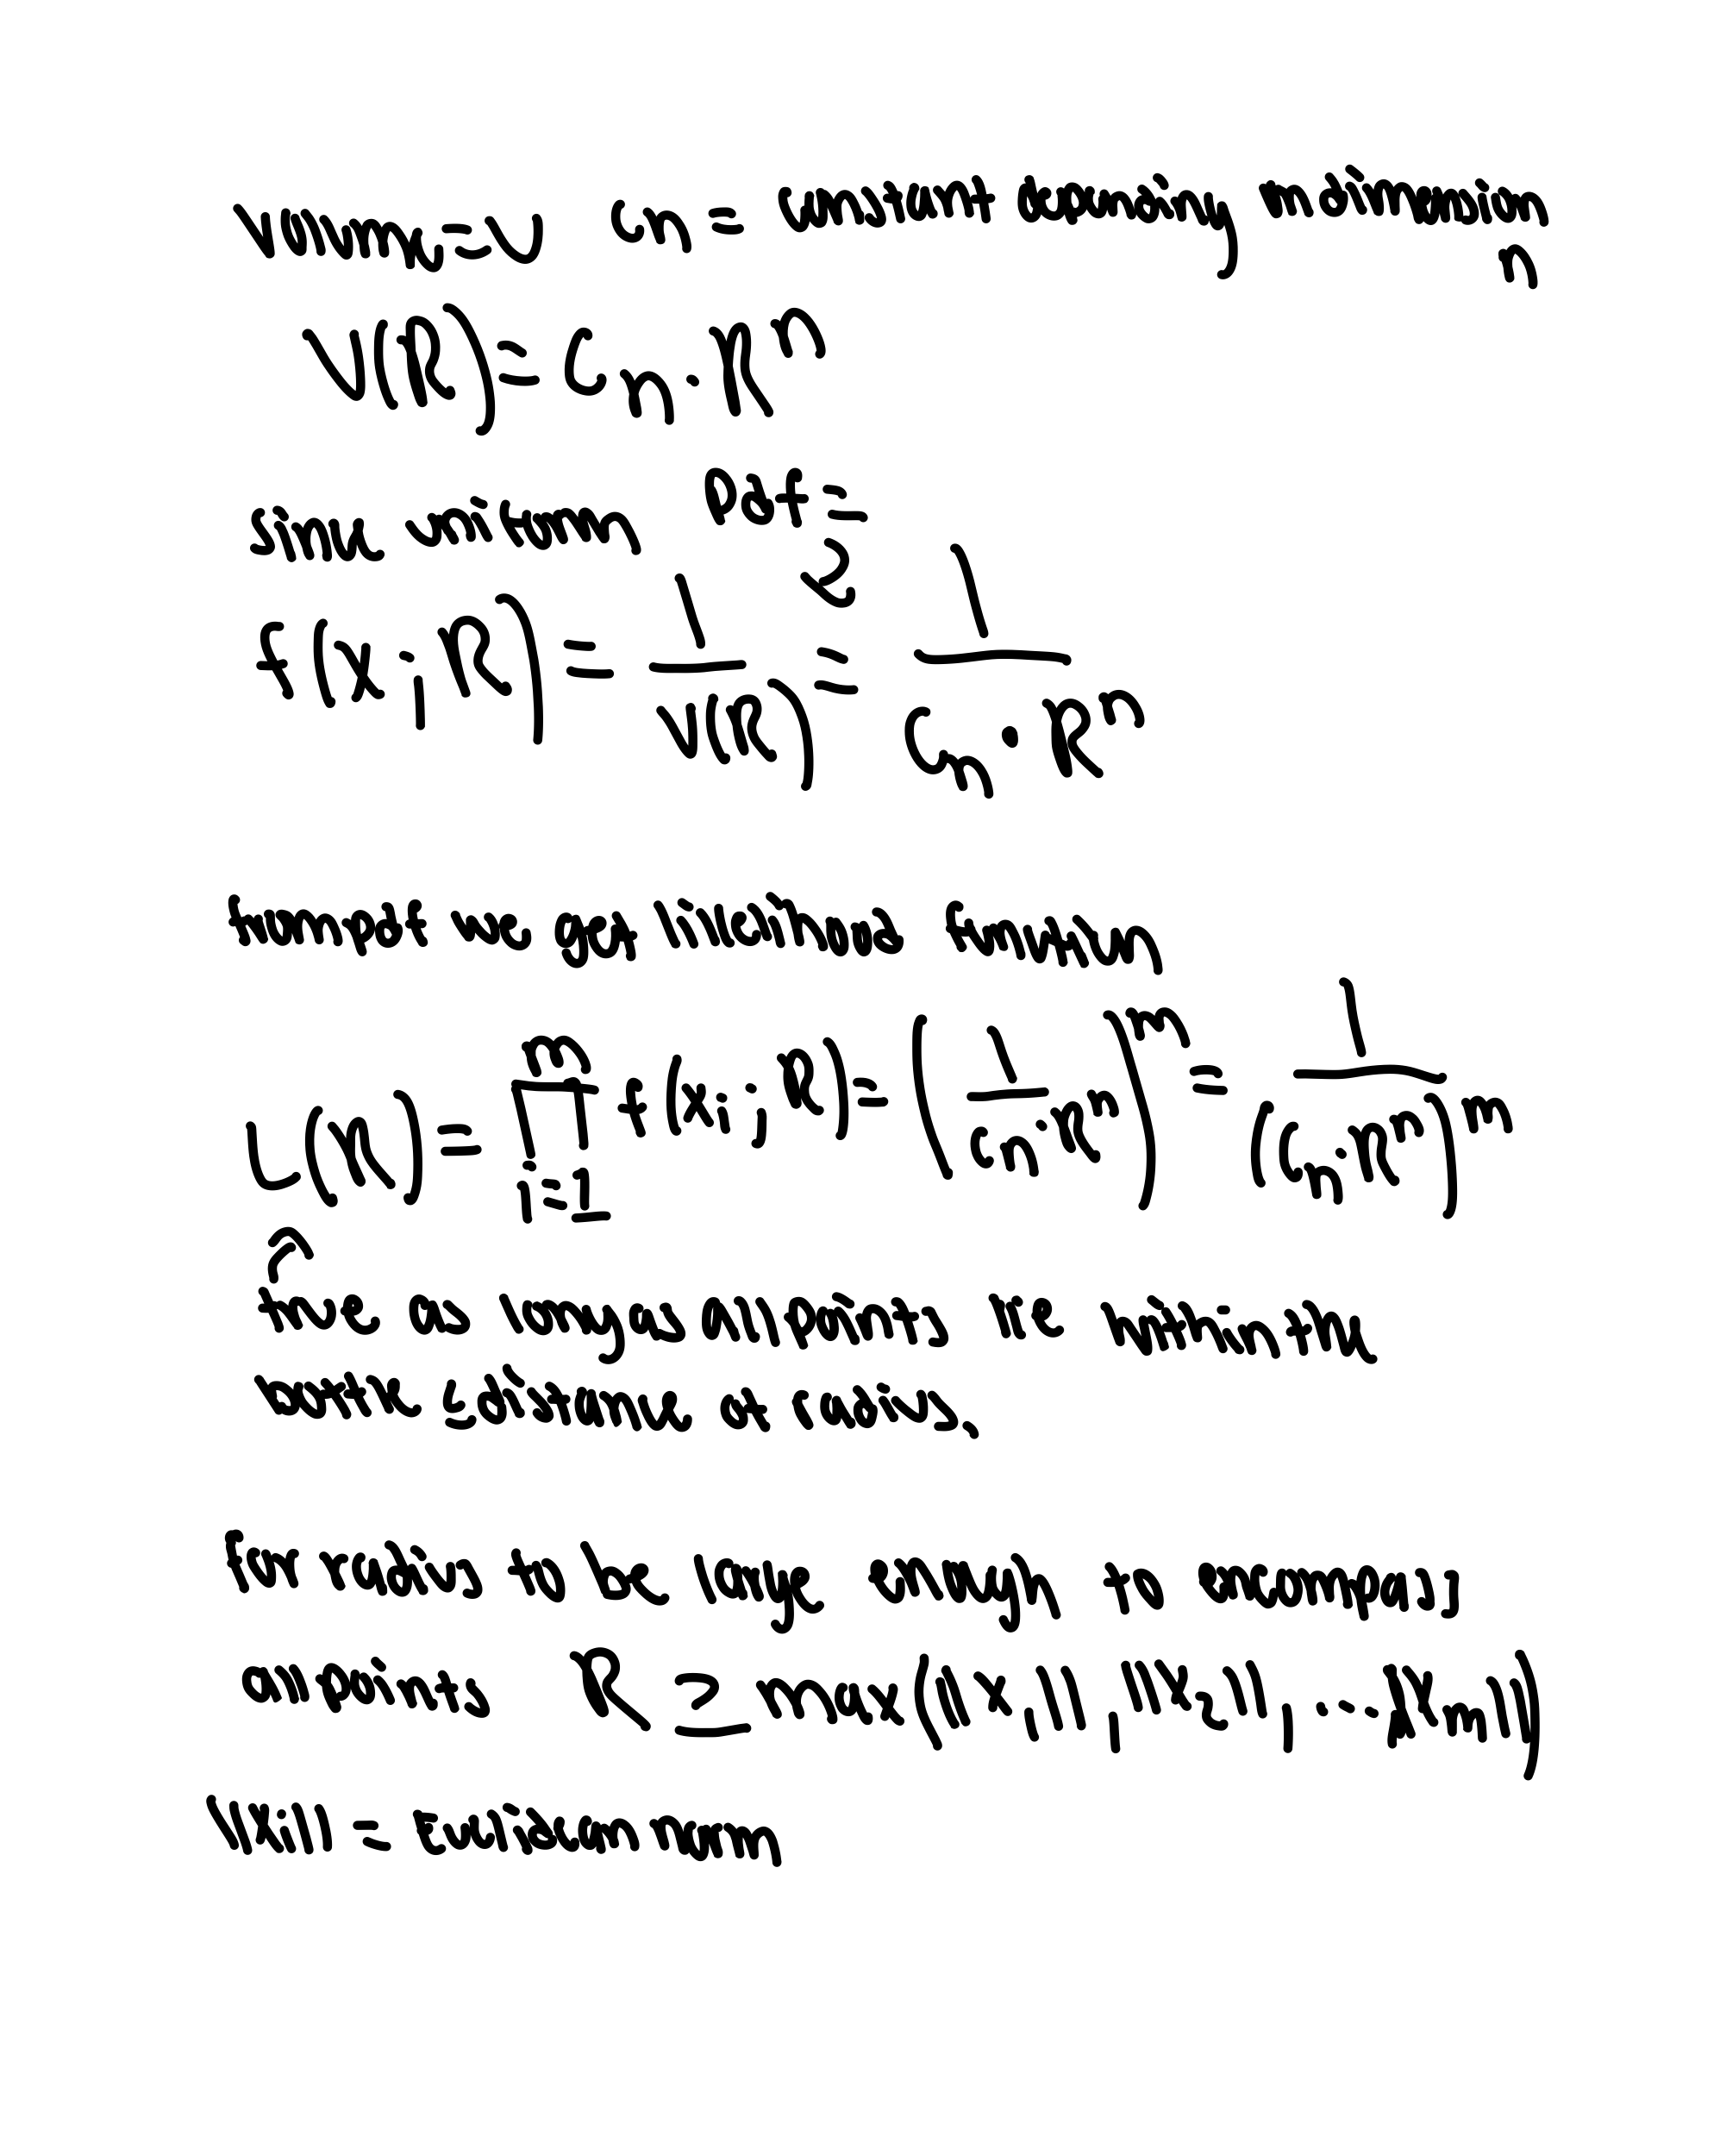 Volume = V Cn = constant depending on dimension n
V(R) = Cn · R^n
since uniform Pdf =
2
f(x;R) = 1/V(R) = 1/(Cn · R^n)
from pdf we get likelihood function
L(R) = ∏_{i=1}^{m} f(xi;R) = (1/(Cn·R^n))^m = 1/(Cn·R^n)^m
↑
true as long as all points lie within the
ball & distance of radius.
for radius to be large enough to encompass
all points, R ≥ max(||x1||, ||x2||, ... ||xm||)
||xi|| = Euclidean norm